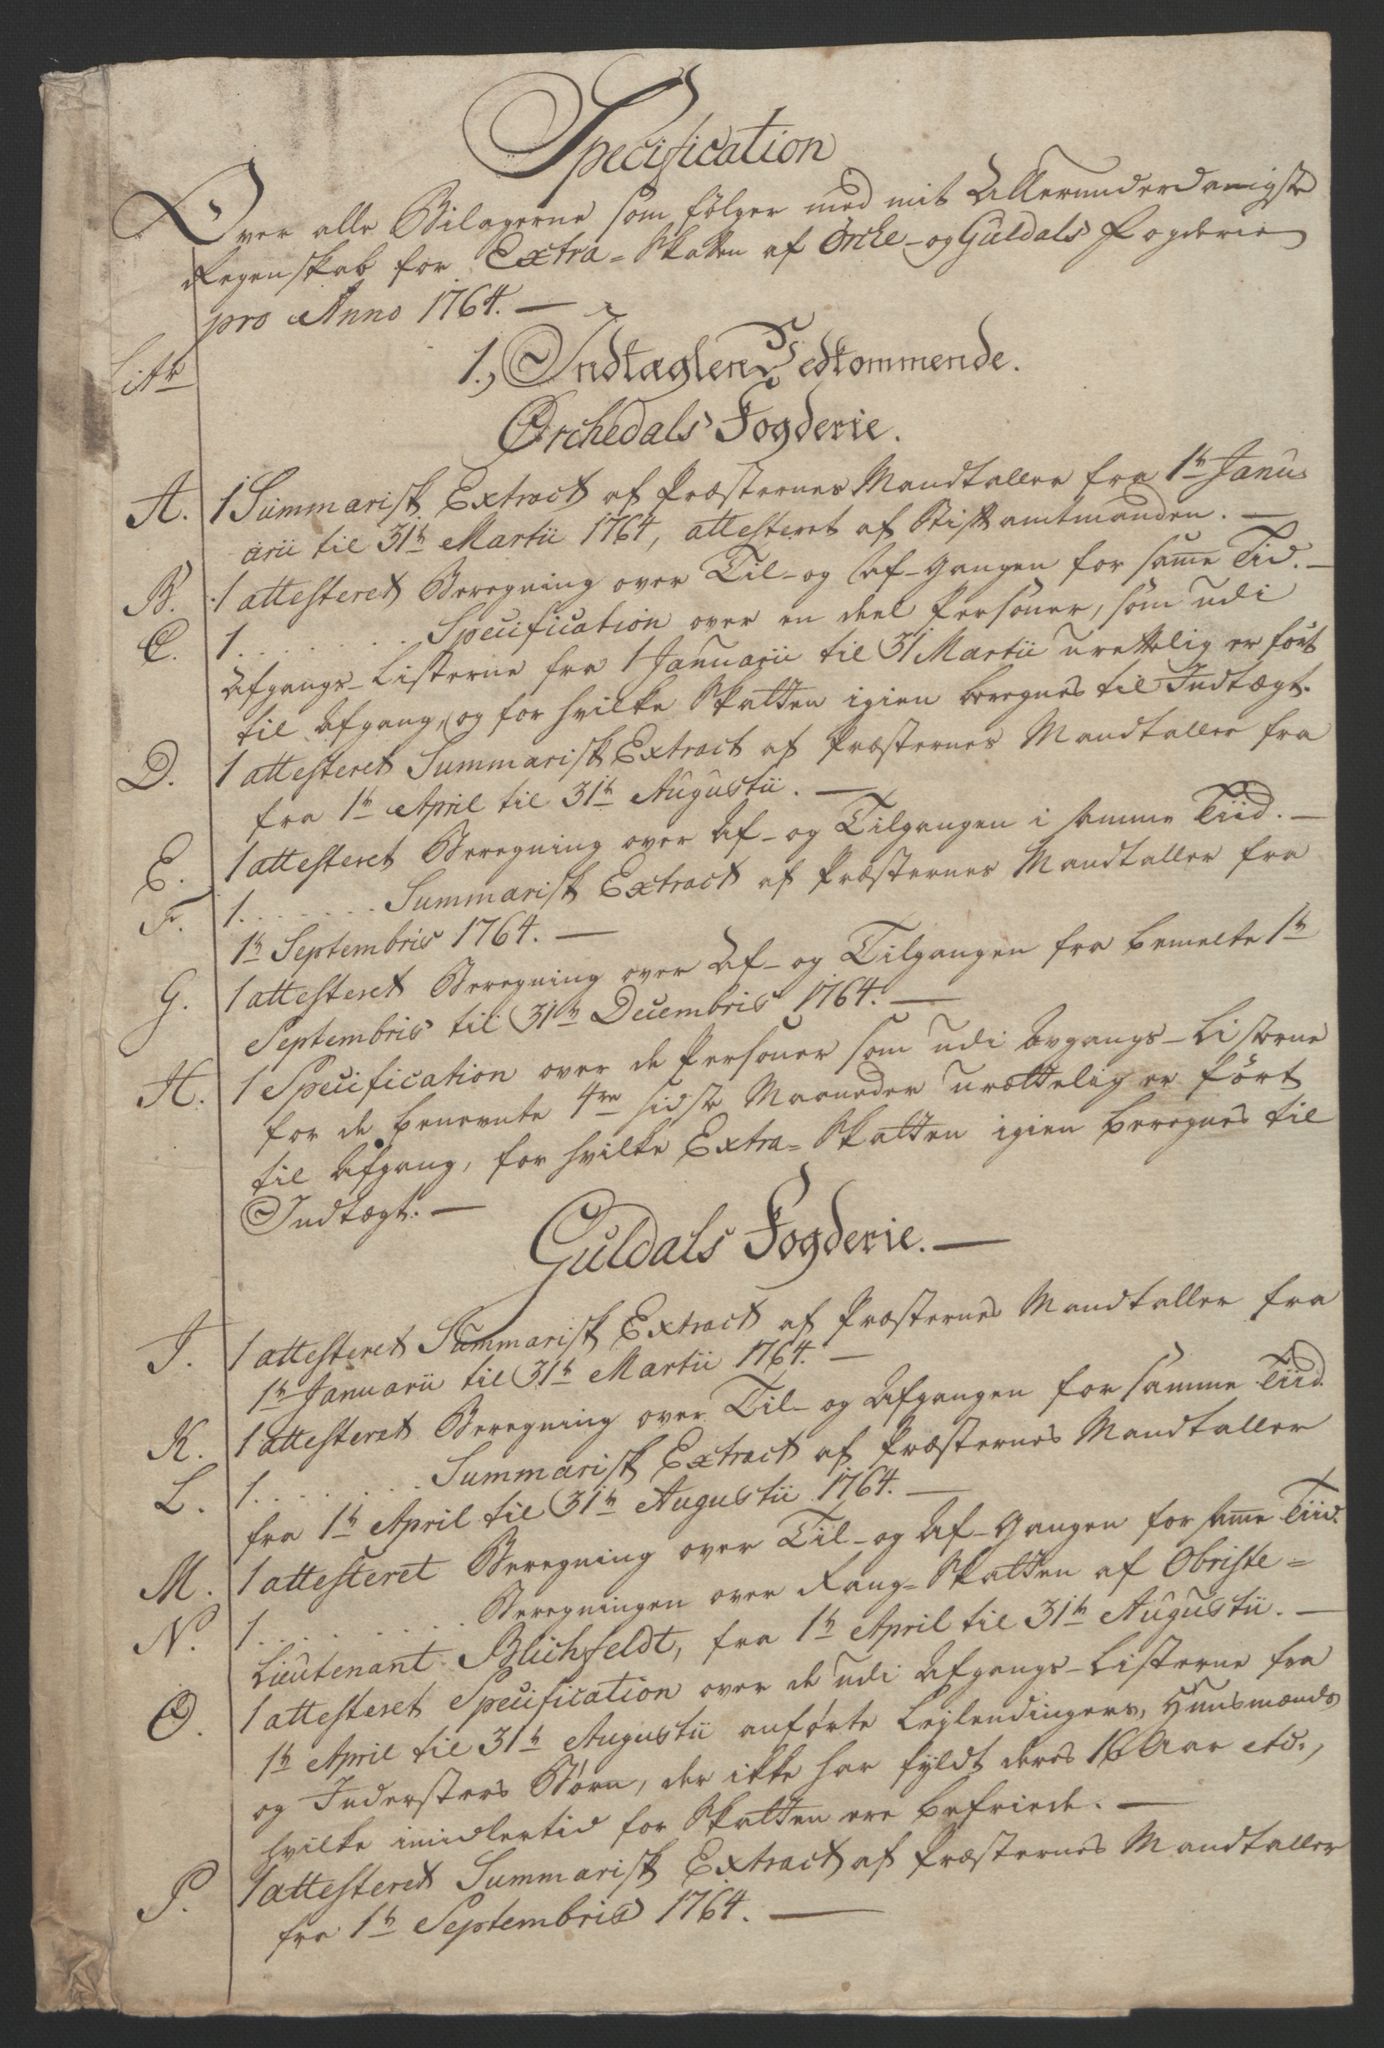 Specification
Over alle Bilagerne som følger med mit Allerunderdanigste
Regenskab for Extra-Skatten af Örche- og Guldals Fogderie
pro Anno 1764. —
Litr
1., Indtægten Vedkommende.
Ørchedals Fogderie.
A. 1 Summarisk Extract af Præsternes Mandtaller fra 1h Janu
arii til 31h Martii 1764, attesteret af Stiftamtmanden. —
B. 1 attesteret Beregning over Til- og Af-Gangen for samme Tid. —
C. 1. . . . . . . . Specification over en deel Personer, som udi
Afgangs-Listerne fra 1 Januarii til 31 Martii urettelig er ført
til Afgang, og for hvilke Skatten igien beregnes til Indtægt.
D. 1 attesteret Summarisk Extract af Præsternes Mandtaller fra
fra 1h April til 31h Augustii. —
E. 1 attesteret Beregning over Af- og Tilgangen i samme Tiid. —
F. 1. . . . . . . . Summarisk Extract af Præsternes Mandtaller fra
1h Septembris 1764. —
G. 1 attesteret Beregning over Af- og Tilgangen fra bemelte 1h
Septembris til 31h Decembris 1764. —
H. 1 Specification over de Personer som udi Avgangs-Listerne
for de benevnte 4re sidste Maaneder urættelig er ført
til Afgang, for hvilke Extra-Skatten igien beregnes til
Indtægt. —
Guldals Fogderie. —
J. 1 attesteret Summarisk Extract af Præsternes Mandtaller fra
1h Januarii til 31h Martii 1764. —
K. 1 attesteret Beregning over Til- og Afgangen for samme Tiid.
L. 1. . . . . . . . Summarisk Extract af Præsternes Mandtaller
fra 1h April til 31h Augustii 1764. —
M. 1 attesteret Beregning over Til- og Af-Gangen for samme Tiid.
N. 1. . . . . . . . Beregningen over Rang-Skatten af Obriste-
Lieutenant Blichfeldt, fra 1h April til 31h Augustii. —
O. 1 attesteret Specification over de udi Afgangs-Listerne fra
1h April til 31h Augustii anførte Leylendingers, Huusmænds
og Indersters Børn, der ikke har fyldt deres 16 Aar etc.,
hvilke imidlertid for Skatten ere befriede. —
P. 1 attesteret Summarisk Extract af Præsternes Mandtaller
fra 1h Septembris 1764. —